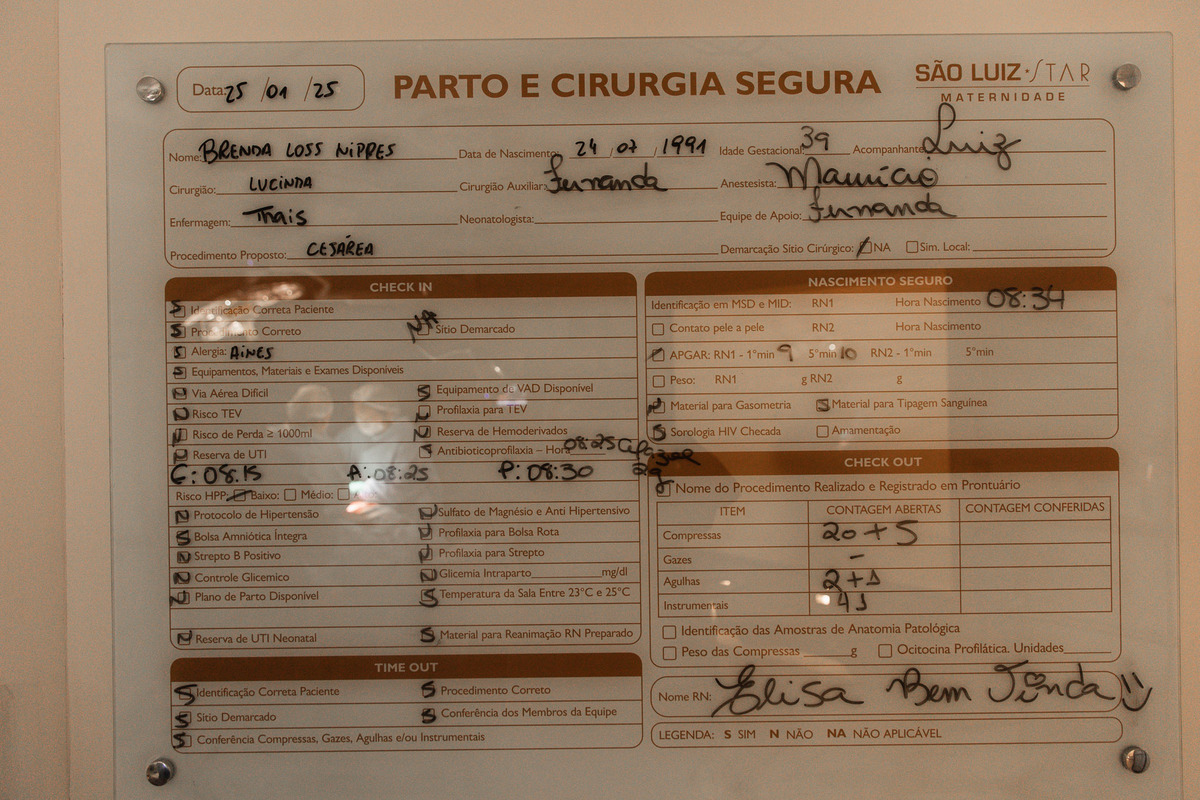 Data: 25 / 01 / 25
PARTO E CIRURGIA SEGURA
SÃO LUIZ STAR
MATERNIDADE
Nome: BRENDA LOSS NIPPES Data de Nascimento: 24 / 07 / 1991 Idade Gestacional: 39 Acompanhante: Luiz
Cirurgião: LUCINDA Cirurgião Auxiliar: Fernanda Anestesista: Maurício
Enfermagem: Thais Neonatologista: Equipe de Apoio: Fernanda
Procedimento Proposto: CESÁREA Demarcação Sitio Cirúrgico: NA Sim. Local:
CHECK IN
S Identificação Correta Paciente
S Procedimento Correto NA Sítio Demarcado
S Alergia: AINES
S Equipamentos, Materiais e Exames Disponíveis
N Via Aérea Difícil S Equipamento de VAD Disponível
N Risco TEV N Profilaxia para TEV
N Risco de Perda ≥ 1000ml N Reserva de Hemoderivados
N Reserva de UTI S Antibioticoprofilaxia – Hora 08:25 2g
C: 08:15 A: 08:25 P: 08:30
Risco HPP: Baixo: Médio:
N Protocolo de Hipertensão N Sulfato de Magnésio e Anti Hipertensivo
S Bolsa Amniótica Íntegra N Profilaxia para Bolsa Rota
N Strepto B Positivo N Profilaxia para Strepto
N Controle Glicemico N Glicemia Intraparto mg/dl
N Plano de Parto Disponível S Temperatura da Sala Entre 23°C e 25°C
N Reserva de UTI Neonatal S Material para Reanimação RN Preparado
TIME OUT
S Identificação Correta Paciente S Procedimento Correto
S Sítio Demarcado S Conferência dos Membros da Equipe
S Conferência Compressas, Gazes, Agulhas e/ou Instrumentais
NASCIMENTO SEGURO
Identificação em MSD e MID: RN1 Hora Nascimento 08:34
Contato pele a pele RN2 Hora Nascimento
APGAR: RN1 - 1°min 9 5°min 10 RN2 - 1°min 5°min
Peso: RN1 g RN2 g
N Material para Gasometria S Material para Tipagem Sanguínea
S Sorologia HIV Checada Amamentação
CHECK OUT
S Nome do Procedimento Realizado e Registrado em Prontuário
ITEM CONTAGEM ABERTAS CONTAGEM CONFERIDAS
Compressas 20 + 5
Gazes -
Agulhas 2 + 1
Instrumentais 41
Identificação das Amostras de Anatomia Patológica
Peso das Compressas g Ocitocina Profilática. Unidades
Nome RN: Elisa Bem Vinda
LEGENDA: S SIM N NÃO NA NÃO APLICÁVEL